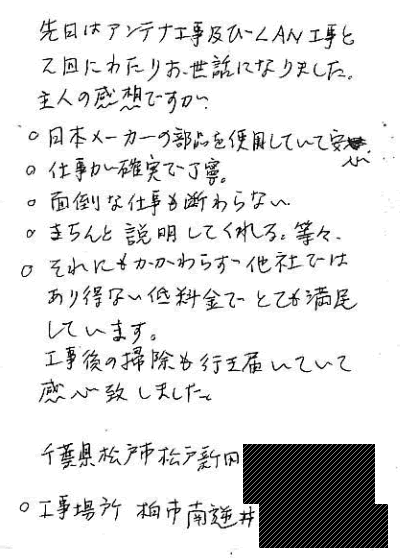 先日はアンテナ工事及びLAN工事と
2回にわたりお世話になりました。
主人の感想ですが、
○日本メーカーの部品を使用していて安心。
○仕事が確実で丁寧。
○面倒な仕事も断わらない
○きちんと説明してくれる。等々、
○それにもかかわらず他社では
あり得ない低料金でとても満足
しています。
工事後の掃除も行き届いていて
感心致しました。
千葉県松戸市松戸新田
○工事場所 柏市南逆井